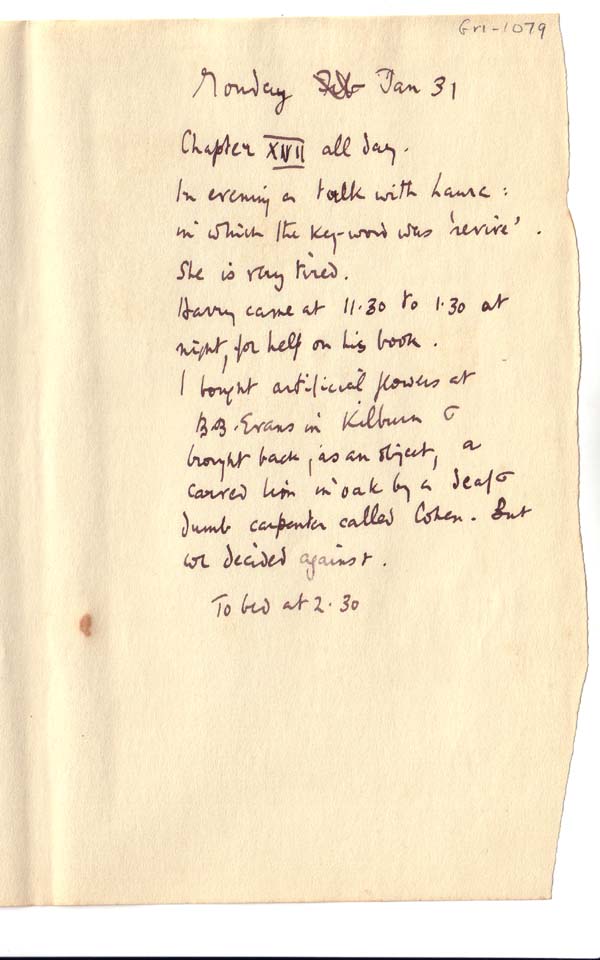 Gri-1079
Monday Jan 31
Chapter XVII all day.
In evening a talk with Laura:
in which the key-word was 'revive'.
She is very tired.
Harry came at 11.30 to 1.30 at
night, for help on his book.
I bought artificial flowers at
B.B. Evans in Kilburn &
brought back, as an object, a
carved lion in oak by a deaf &
dumb carpenter called Cohen. But
we decided against.
To bed at 2.30